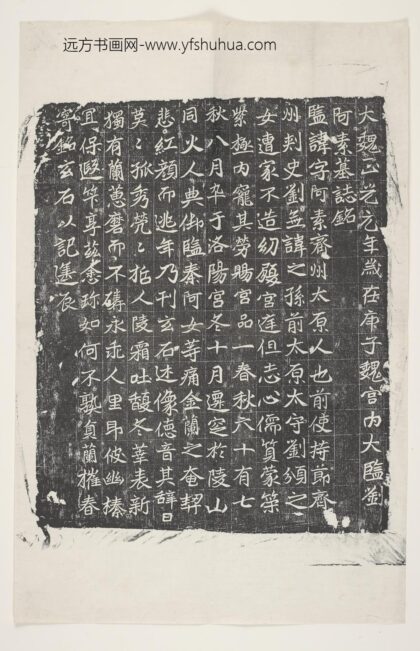 远方书画网-www.yfshuhua.com
大魏正光元年歲在庚子魏宮內大監劉
阿素墓誌銘
監諱字阿素齊州太原人也前使持節齊
州刾史劉無諱之孫前太原太守劉頒之
女遭家不造幼履宮庭但志心儒質蒙策
紫極內寵其勞賜宮品一春秋六十有七
秋八月卒于洛陽宮冬十月遷窆於陵山
同火人典御監秦阿女等痛金蘭之奄契
悲紅顏而逃年乃刊玄石述像德音其辞曰
莫莫孤秀煢煢恉人陵霜吐馥冬華表新
獨有蘭蕙磨而不磷永乖人里即彼幽榛
宜保遐筭享茲悉珎如何不熟貞蘭摧春
寄銘玄石以記遷辰